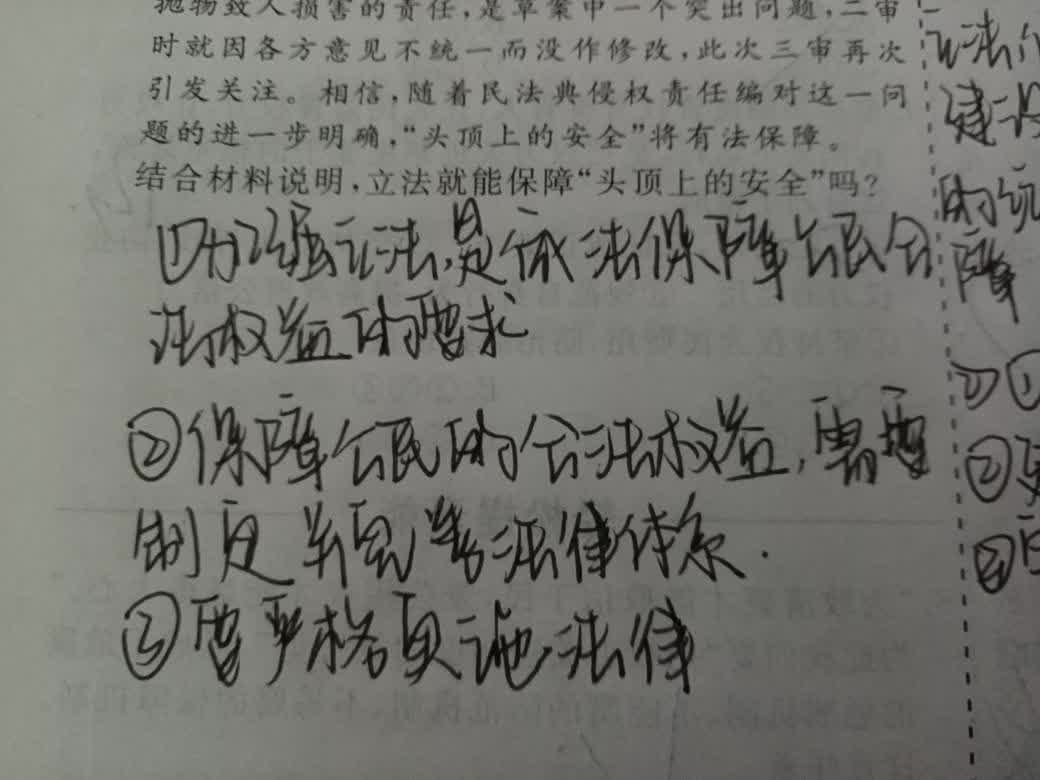 抛物致人损害的责任,是草案中一个突出问题,二审
时就因各方意见不统一而没作修改,此次三审再次
引发关注。相信,随着民法典侵权责任编对这一问
题的进一步明确,“头顶上的安全”将有法保障。
结合材料说明,立法就能保障“头顶上的安全”吗?
①加强立法,是依法保障公民合
法权益的要求
②保障公民的合法权益,需要
制定完善法律体系.
③要严格实施法律